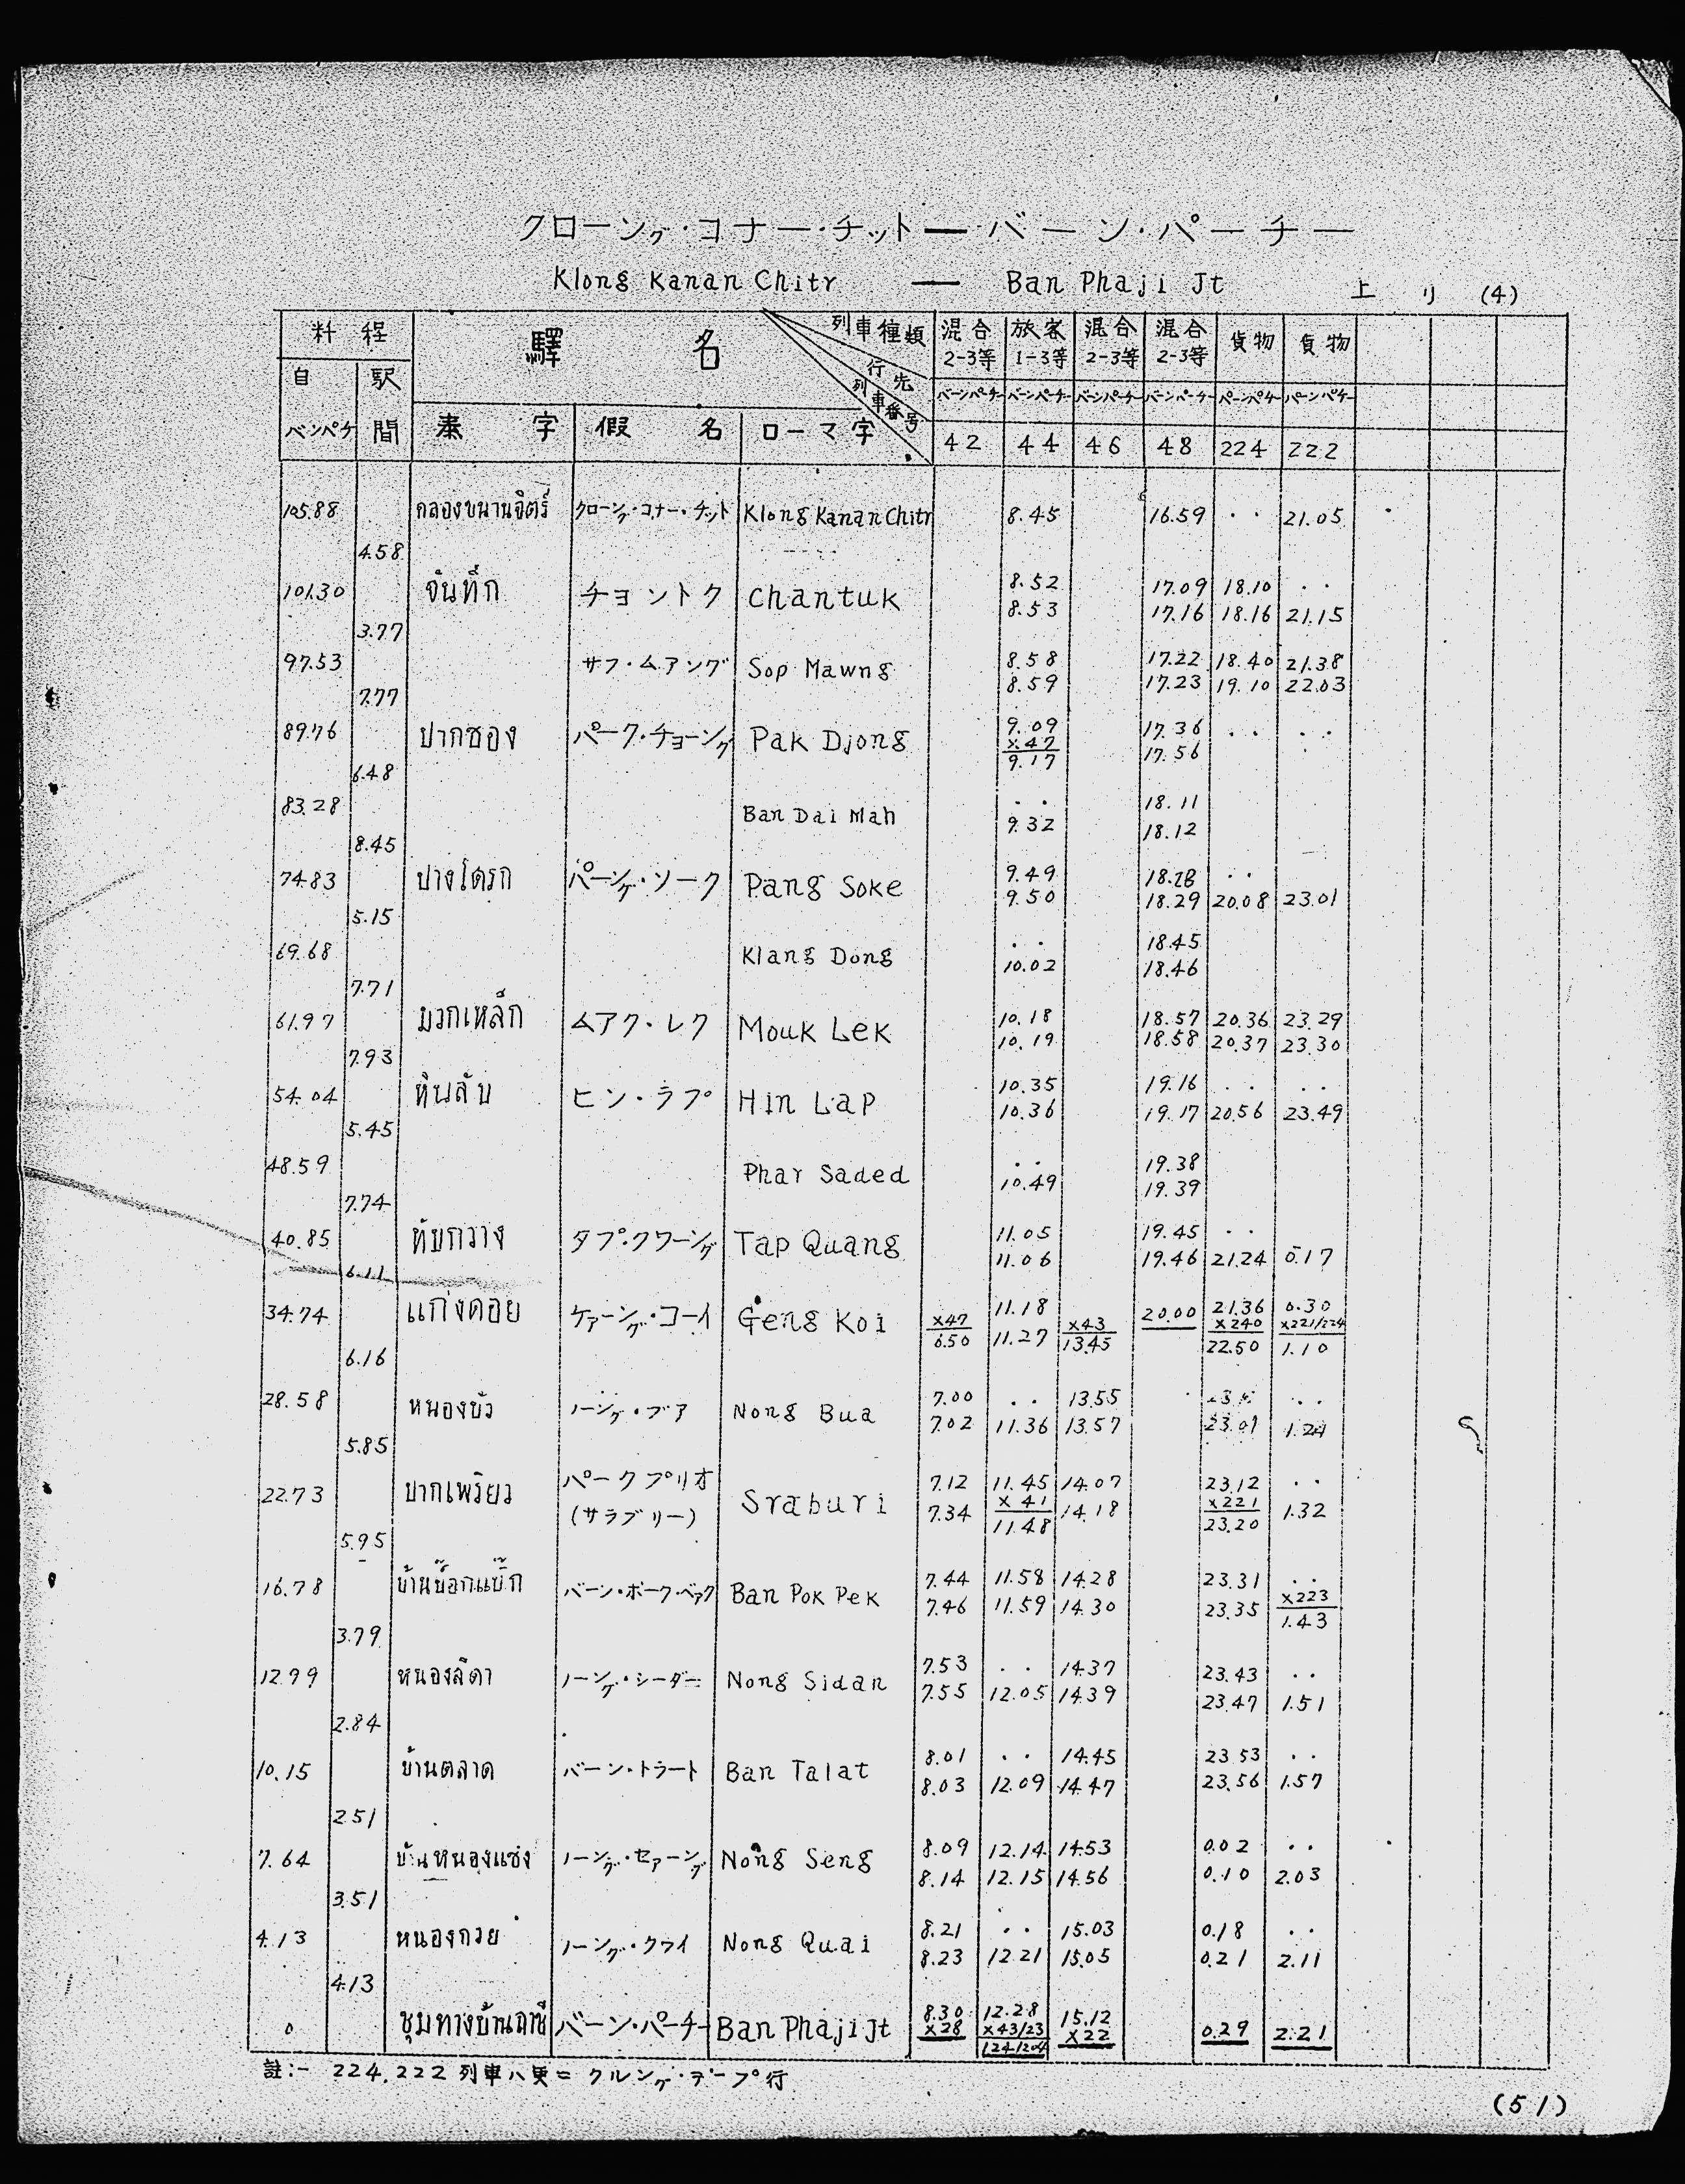 クローング・コナー・チット — バーン・パーチー
Klong Kanan Chitr — Ban Phaji Jt 上 リ (4)
料程 驛 名 列車種類 混合 旅客 混合 混合 貨物 貨物
2-3等 1-3等 2-3等 2-3等
自 駅 行先
バーンパーチー バーンパーチー バーンパーチー バーンパーチー バーンパチー バーンパチー
列車番号
バンパチ 間 泰 字 假 名 ローマ字 42 44 46 48 224 222
105.88 คลองขนานจิตร์ クローング・コナー・チット Klong Kanan Chitr 8.45 16.59 ・・ 21.05
4.58
101.30 จันทึก チョントク Chantuk 8.52 17.09 18.10 ・・
8.53 17.16 18.16 21.15
3.77
97.53 サフ・ムアング Sop Mawng 8.58 17.22 18.40 21.38
8.59 17.23 19.10 22.03
7.77
89.76 ปากชอง パーク・チョーング Pak Djong 9.09 17.36 ・・ ・・
x47
9.17 17.56
6.48
83.28 Ban Dai Mah ・・ 18.11
9.32 18.12
8.45
74.83 ปางโศรก パーング・ソーク Pang Soke 9.49 18.28 ・・
9.50 18.29 20.08 23.01
5.15
69.68 Klang Dong ・・ 18.45
10.02 18.46
7.71
61.97 มวกเหล็ก ムアク・レク Mouk Lek 10.18 18.57 20.36 23.29
10.19 18.58 20.37 23.30
7.93
54.04 หินลับ ヒン・ラプ Hin Lap 10.35 19.16 ・・ ・・
10.36 19.17 20.56 23.49
5.45
48.59 Phar Saded ・・ 19.38
10.49 19.39
7.74
40.85 ทับกวาง タプ・クワーング Tap Quang 11.05 19.45 ・・
11.06 19.46 21.24 0.17
6.11
34.74 แก่งคอย ケァーング・コーイ Geng Koi x47 11.18 x43 20.00 21.36 0.30
x240 x221/224
6.50 11.27 13.45 22.50 1.10
6.16
28.58 หนองบัว ノーング・ブア Nong Bua 7.00 ・・ 13.55 ・・
7.02 11.36 13.57 23.01 1.24
5.85
22.73 ปากเพรียว パークプリオ Sraburi 7.12 11.45 14.07 23.12 ・・
(サラブリー) 7.34 x 41 14.18 x221 1.32
11.48 23.20
5.95
16.78 บ้านป๊อกแป๊ก バーン・ポーク・ペァク Ban Pok Pek 7.44 11.58 14.28 23.31 ・・
x223
7.46 11.59 14.30 23.35 1.43
3.79
12.99 หนองสีดา ノーング・シーダー Nong Sidan 7.53 ・・ 14.37 23.43 ・・
7.55 12.05 14.39 23.47 1.51
2.84
10.15 บ้านตลาด バーン・トラート Ban Talat 8.01 ・・ 14.45 23.53 ・・
8.03 12.09 14.47 23.56 1.57
2.51
7.64 บ้านหนองแซง ノーング・セァーング Nong Seng 8.09 12.14 14.53 0.02 ・・
8.14 12.15 14.56 0.10 2.03
3.51
4.13 หนองกวย ノーング・クワイ Nong Quai 8.21 ・・ 15.03 0.18 ・・
8.23 12.21 15.05 0.21 2.11
4.13
0 ชุมทางบ้านภาชี バーン・パーチー Ban Phaji Jt 8.30 12.28 15.12 0.29 2.21
x28 x43/23 x22
註:- 224.222 列車ハ更ニ クルング・テープ行
(51)